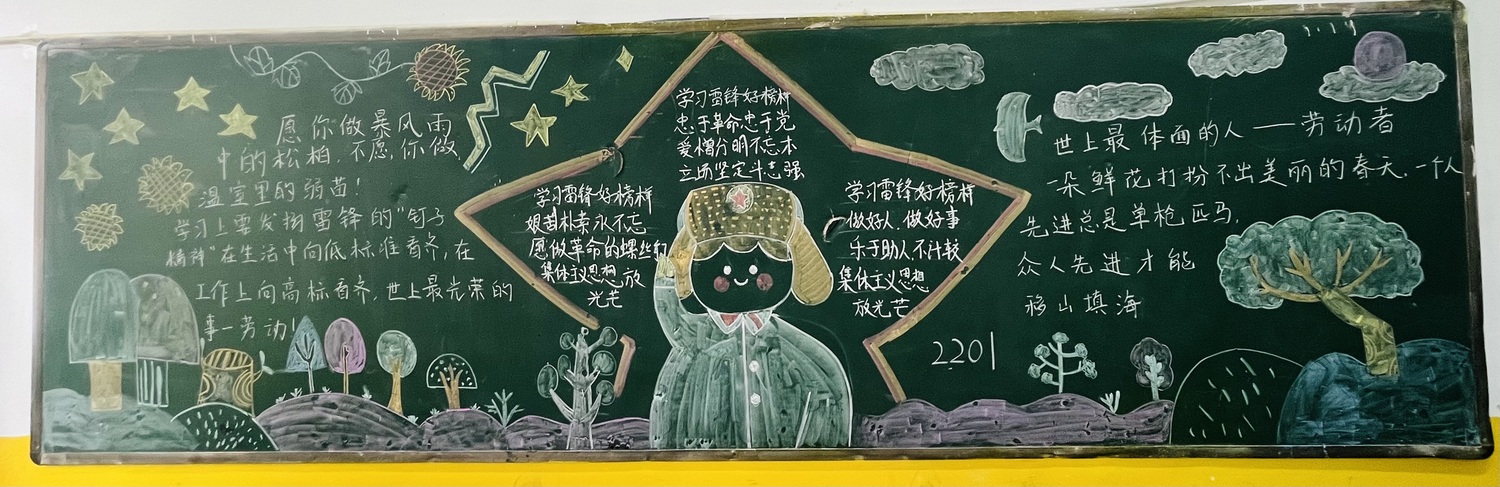 愿你做暴风雨
中的松柏,不愿,你做
温室里的弱苗!
学习上要发扬雷锋的"钉子
精神"在生活中向低标准看齐,在
工作上向高标看齐,世上最光荣的
事一劳动!
学习雷锋好榜样
忠于革命忠于党
爱憎分明不忘本
立场坚定斗志强
学习雷锋好榜样
艰苦朴素永不忘
愿做革命的螺丝钉
集体主义思想放
光芒
学习雷锋好榜样
做好人、做好事
乐于助人不计较
集体主义思想
放光芒
2201
世上最体面的人——劳动者
一朵鲜花打扮不出美丽的春天.一个人
先进总是单枪匹马,
众人先进才能
移山填海